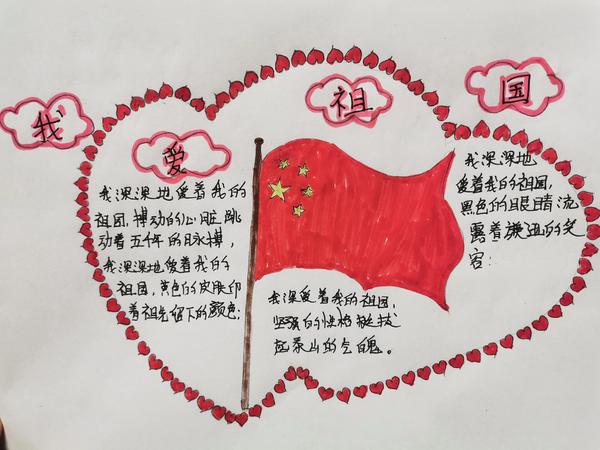 我
爱
祖
国
我深深地爱着我的
祖国,搏动的心脏跳
动着五仟年的脉搏,
我深深地爱着我的
祖国,黄色的皮肤印
着祖先留下的颜色;
我深爱着我的祖国;
坚强的性格挺拔
起泰山的气魄。
我深深地
爱着我的祖国,
黑色的眼睛流
露着谦逊的笑
容;